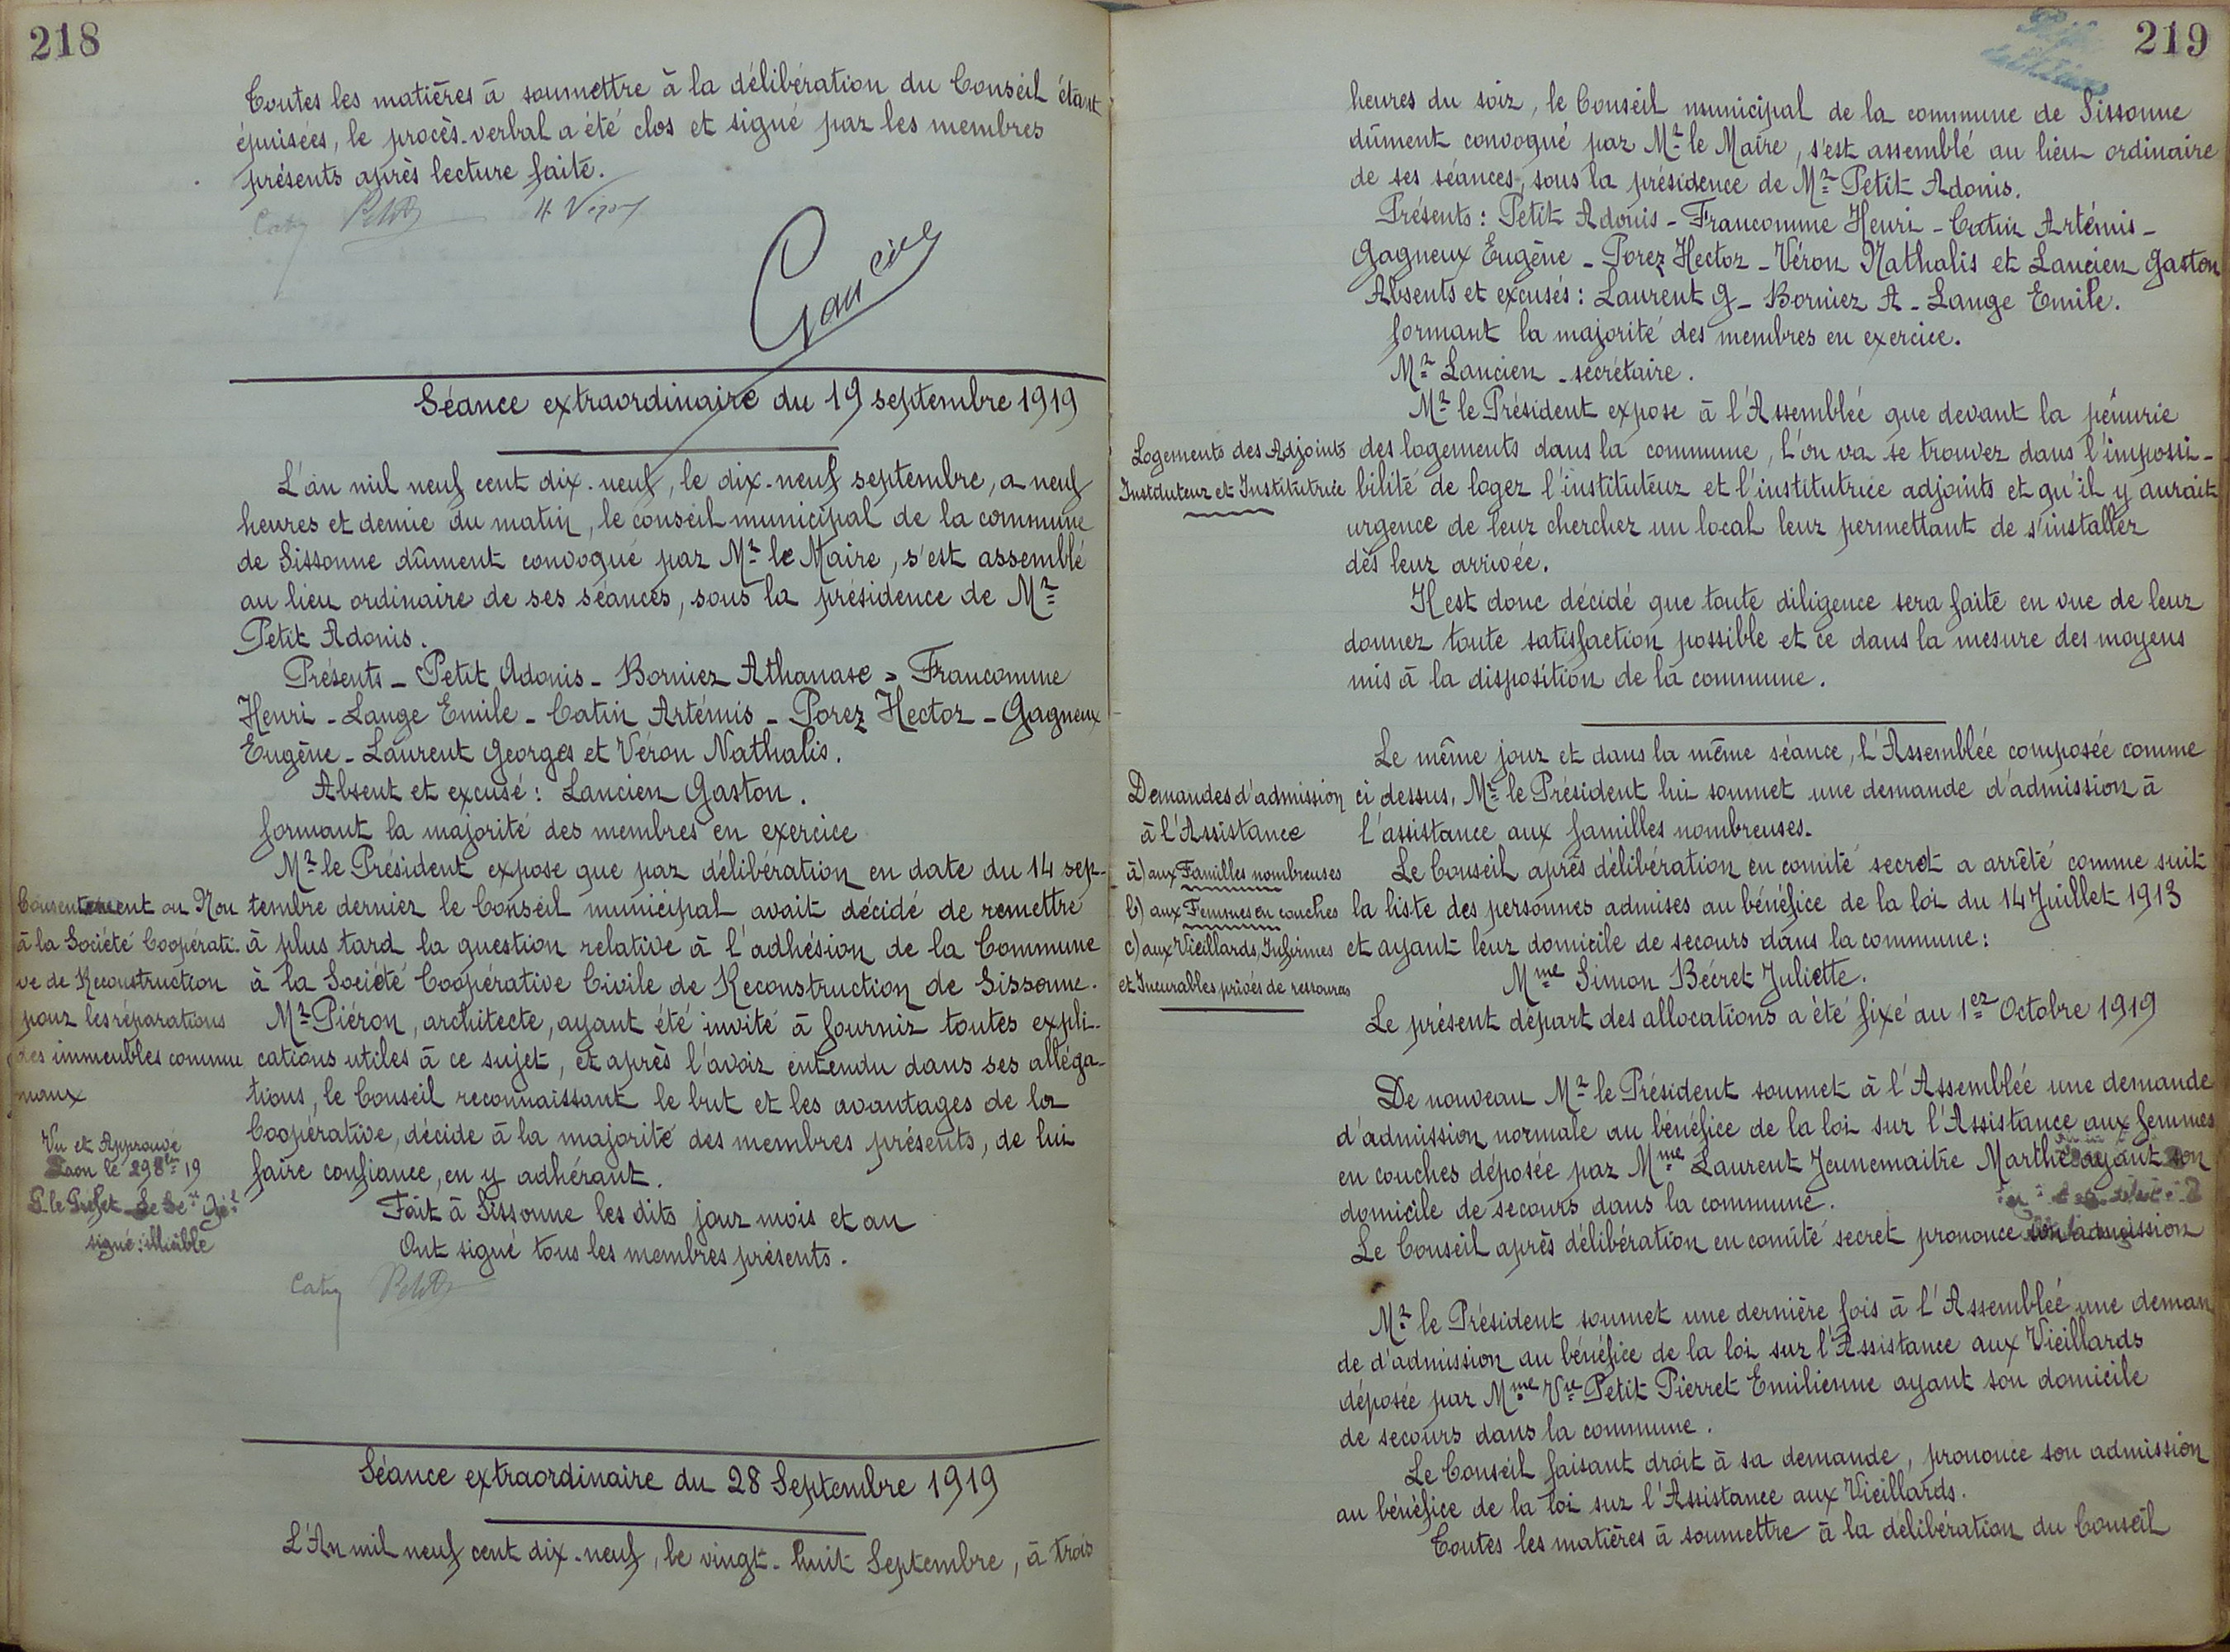 218
Toutes les matières à soumettre à la délibération du Conseil étant
épuisées, le procès-verbal a été clos et signé par les membres
présents après lecture faite.
Catin Petit H. Véron
Lancien
Séance extraordinaire du 19 septembre 1919
L'an mil neuf cent dix-neuf, le dix-neuf septembre, a neuf
heures et demie du matin, le conseil municipal de la commune
de Sissonne dûment convoqué par Mr le Maire, s'est assemblé
au lieu ordinaire de ses séances, sous la présidence de Mr
Petit Adonis.
Présents - Petit Adonis - Borniez Athanase - Francomme
Henri - Lange Emile - Catin Artémis - Porez Hector - Gagneux
Eugène - Laurent Georges et Véron Nathalis.
Absent et excusé : Lancien Gaston.
formant la majorité des membres en exercice
Mr le Président expose que par délibération en date du 14 sep-
tembre dernier le Conseil municipal avait décidé de remettre
à plus tard la question relative à l'adhésion de la Commune
à la Société Coopérative Civile de Reconstruction de Sissonne.
Mr Piéron, architecte, ayant été invité à fournir toutes expli-
cations utiles à ce sujet, et après l'avoir entendu dans ses alléga-
tions, le Conseil reconnaissant le but et les avantages de la
Coopérative, décide à la majorité des membres présents, de lui
faire confiance, en y adhérant.
Fait à Sissonne les dits jour mois et an
Ont signé tous les membres présents.
Catin Petit
Consentement ou Non
à la Société Coopérati-
ve de Reconstruction
pour les réparations
des immeubles commu
naux
Vu et Approuvé
Laon le 29 8bre 19
P. le Préfet Le Sre Gal
signé : illisible
Séance extraordinaire du 28 Septembre 1919
L'An mil neuf cent dix-neuf, le vingt-huit Septembre, à trois
219
heures du soir, le Conseil municipal de la commune de Sissonne
dûment convoqué par Mr le Maire, s'est assemblé au lieu ordinaire
de ses séances, sous la présidence de Mr Petit Adonis.
Présents : Petit Adonis - Francomme Henri - Catin Artémis -
Gagneux Eugène - Porez Hector - Véron Nathalis et Lancien Gaston
Absents et excusés : Laurent G - Borniez A - Lange Emile.
formant la majorité des membres en exercice.
Mr Lancien - secrétaire.
Mr le Président expose à l'Assemblée que devant la pénurie
des logements dans la commune, l'on va se trouver dans l'impossi-
bilité de loger l'instituteur et l'institutrice adjoints et qu'il y aurait
urgence de leur chercher un local leur permettant de s'installer
dès leur arrivée.
Il est donc décidé que toute diligence sera faite en vue de leur
donner toute satisfaction possible et ce dans la mesure des moyens
mis à la disposition de la commune.
Logements des Adjoints
Instituteur et Institutrice
Le même jour et dans la même séance, l'Assemblée composée comme
ci dessus, Mr le Président lui soumet une demande d'admission à
l'assistance aux familles nombreuses.
Le Conseil après délibération en comité secret a arrêté comme suit
la liste des personnes admises au bénéfice de la loi du 14 Juillet 1913
et ayant leur domicile de secours dans la commune :
Mme Simon Bécret Juliette.
Le présent départ des allocations a été fixé au 1er Octobre 1919
Demandes d'admission
à l'Assistance
a) aux Familles nombreuses
b) aux Femmes en couches
c) aux Vieillards, Infirmes
et Incurables privés de ressources
De nouveau Mr le Président soumet à l'Assemblée une demande
d'admission normale au bénéfice de la loi sur l'Assistance aux femmes
en couches déposée par Mme Laurent Jeunemaitre Marthe ayant son
domicile de secours dans la commune.
Le Conseil après délibération en comité secret prononce son admission
Mr le Président soumet une dernière fois à l'Assemblée une deman
de d'admission au bénéfice de la loi sur l'Assistance aux Vieillards
déposée par Mme Vve Petit Pierret Emilienne ayant son domicile
de secours dans la commune.
Le Conseil faisant droit à sa demande, prononce son admission
au bénéfice de la loi sur l'Assistance aux Vieillards.
Toutes les matières à soumettre à la délibération du Conseil